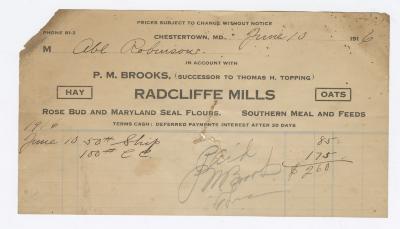 PRICES SUBJECT TO CHANGE WITHOUT NOTICE
PHONE 81-3
CHESTERTOWN, MD. June 13 1916
M Abe Robinson
IN ACCOUNT WITH
P. M. BROOKS, (SUCCESSOR TO THOMAS H. TOPPING)
HAY RADCLIFFE MILLS OATS
ROSE BUD AND MARYLAND SEAL FLOURS. SOUTHERN MEAL AND FEEDS
TERMS CASH: DEFERRED PAYMENTS INTEREST AFTER 30 DAYS
1916
June 13 50# Ship 85
100# C C 175
$ 260
Paid
P M Brooks